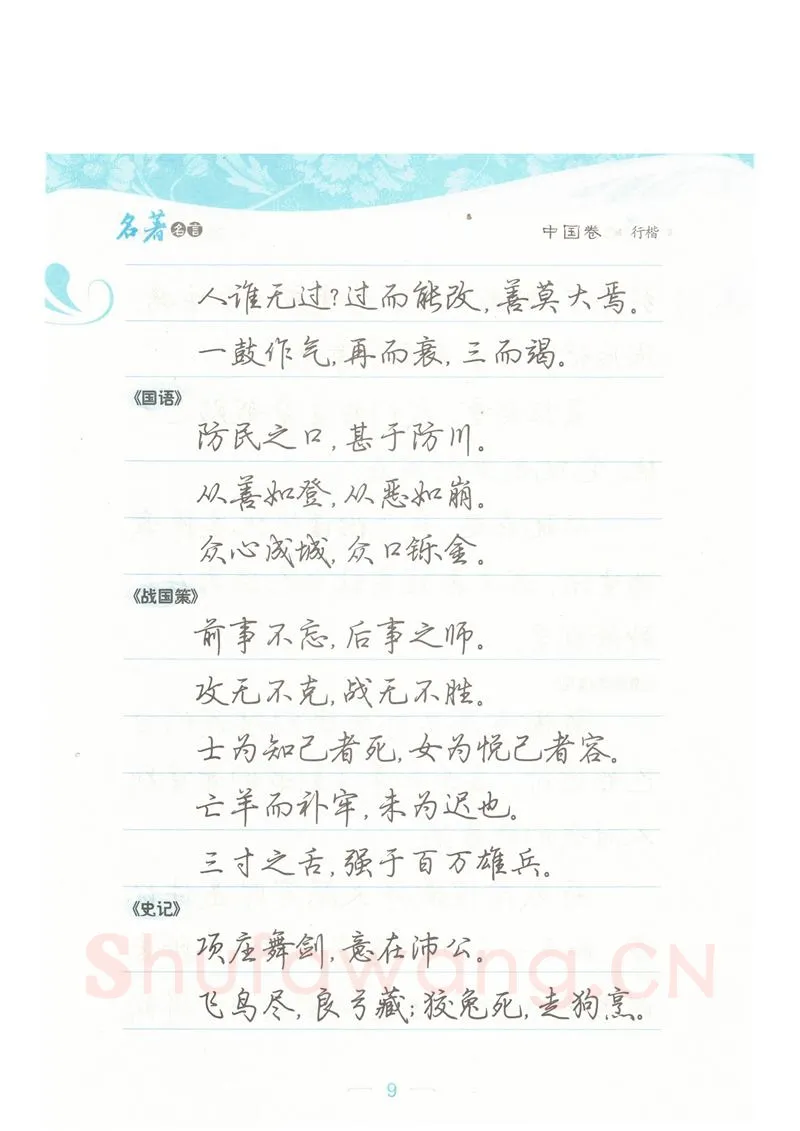 名著名言
中国卷 行楷
人谁无过?过而能改,善莫大焉。
一鼓作气,再而衰,三而竭。
《国语》
防民之口,甚于防川。
从善如登,从恶如崩。
众心成城,众口铄金。
《战国策》
前事不忘,后事之师。
攻无不克,战无不胜。
士为知己者死,女为悦己者容。
亡羊而补牢,未为迟也。
三寸之舌,强于百万雄兵。
《史记》
项庄舞剑,意在沛公。
飞鸟尽,良弓藏;狡兔死,走狗烹。
Shufawang.CN
9